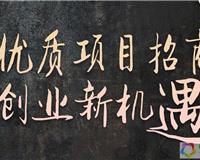 优质项目招商
创业新机遇